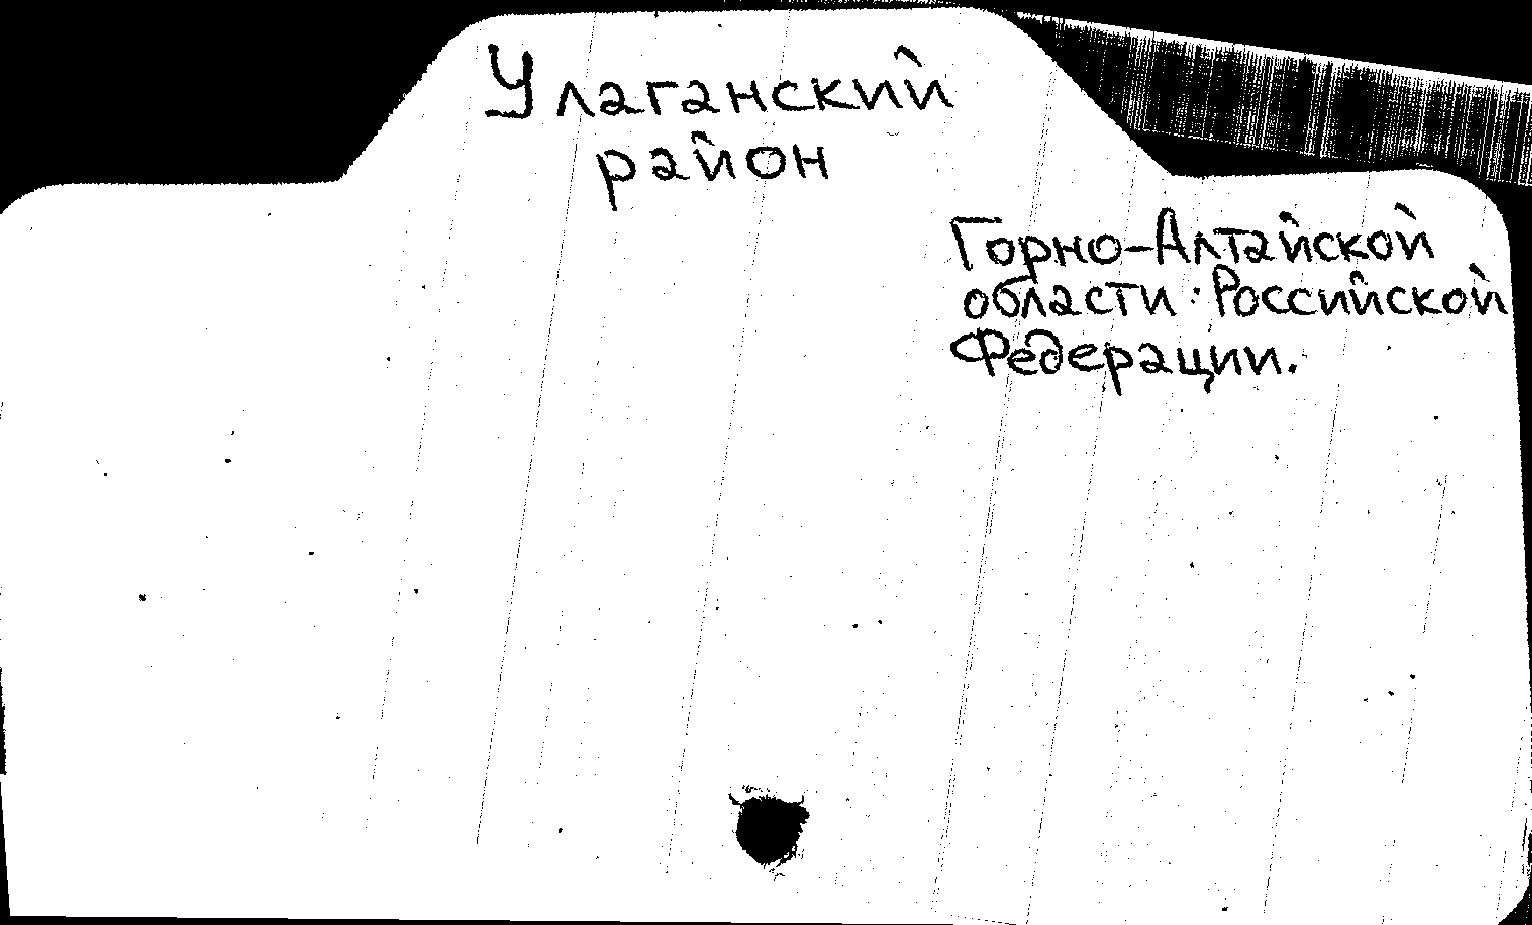 Улаганский
район
Горно-Алтайской
области Российской
Федерации.